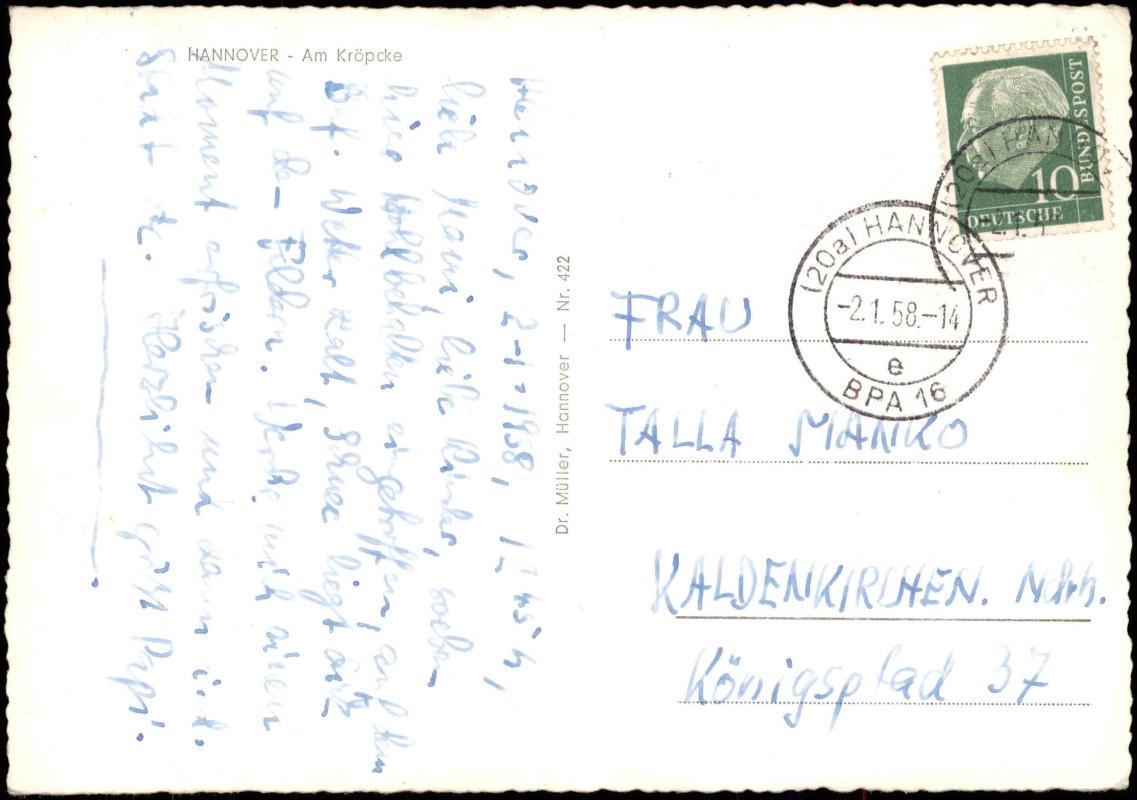 HANNOVER - Am Kröpcke
Hannover, 2-1-1958, 1345 h,
liebe Mami, liebe Kinder, soeben
hier wohlbehalten eingetroffen, auf dem
Bhf. Wetter kalt, Schnee liegt dick
auf den Feldern. Werde mich einen
Moment erfrischen und dann in d.
Stadt etc. Herzlichst grüßt Papi.
Dr. Müller, Hannover — Nr. 422
DEUTSCHE
BUNDESPOST
10
(20a) HANNOVER
-2.1.58.-14
e
BPA 16
(20a) HAN
-2.1.5
FRAU
TALLA MANKO
KALDENKIRCHEN. Ndrh.
Königspfad 37